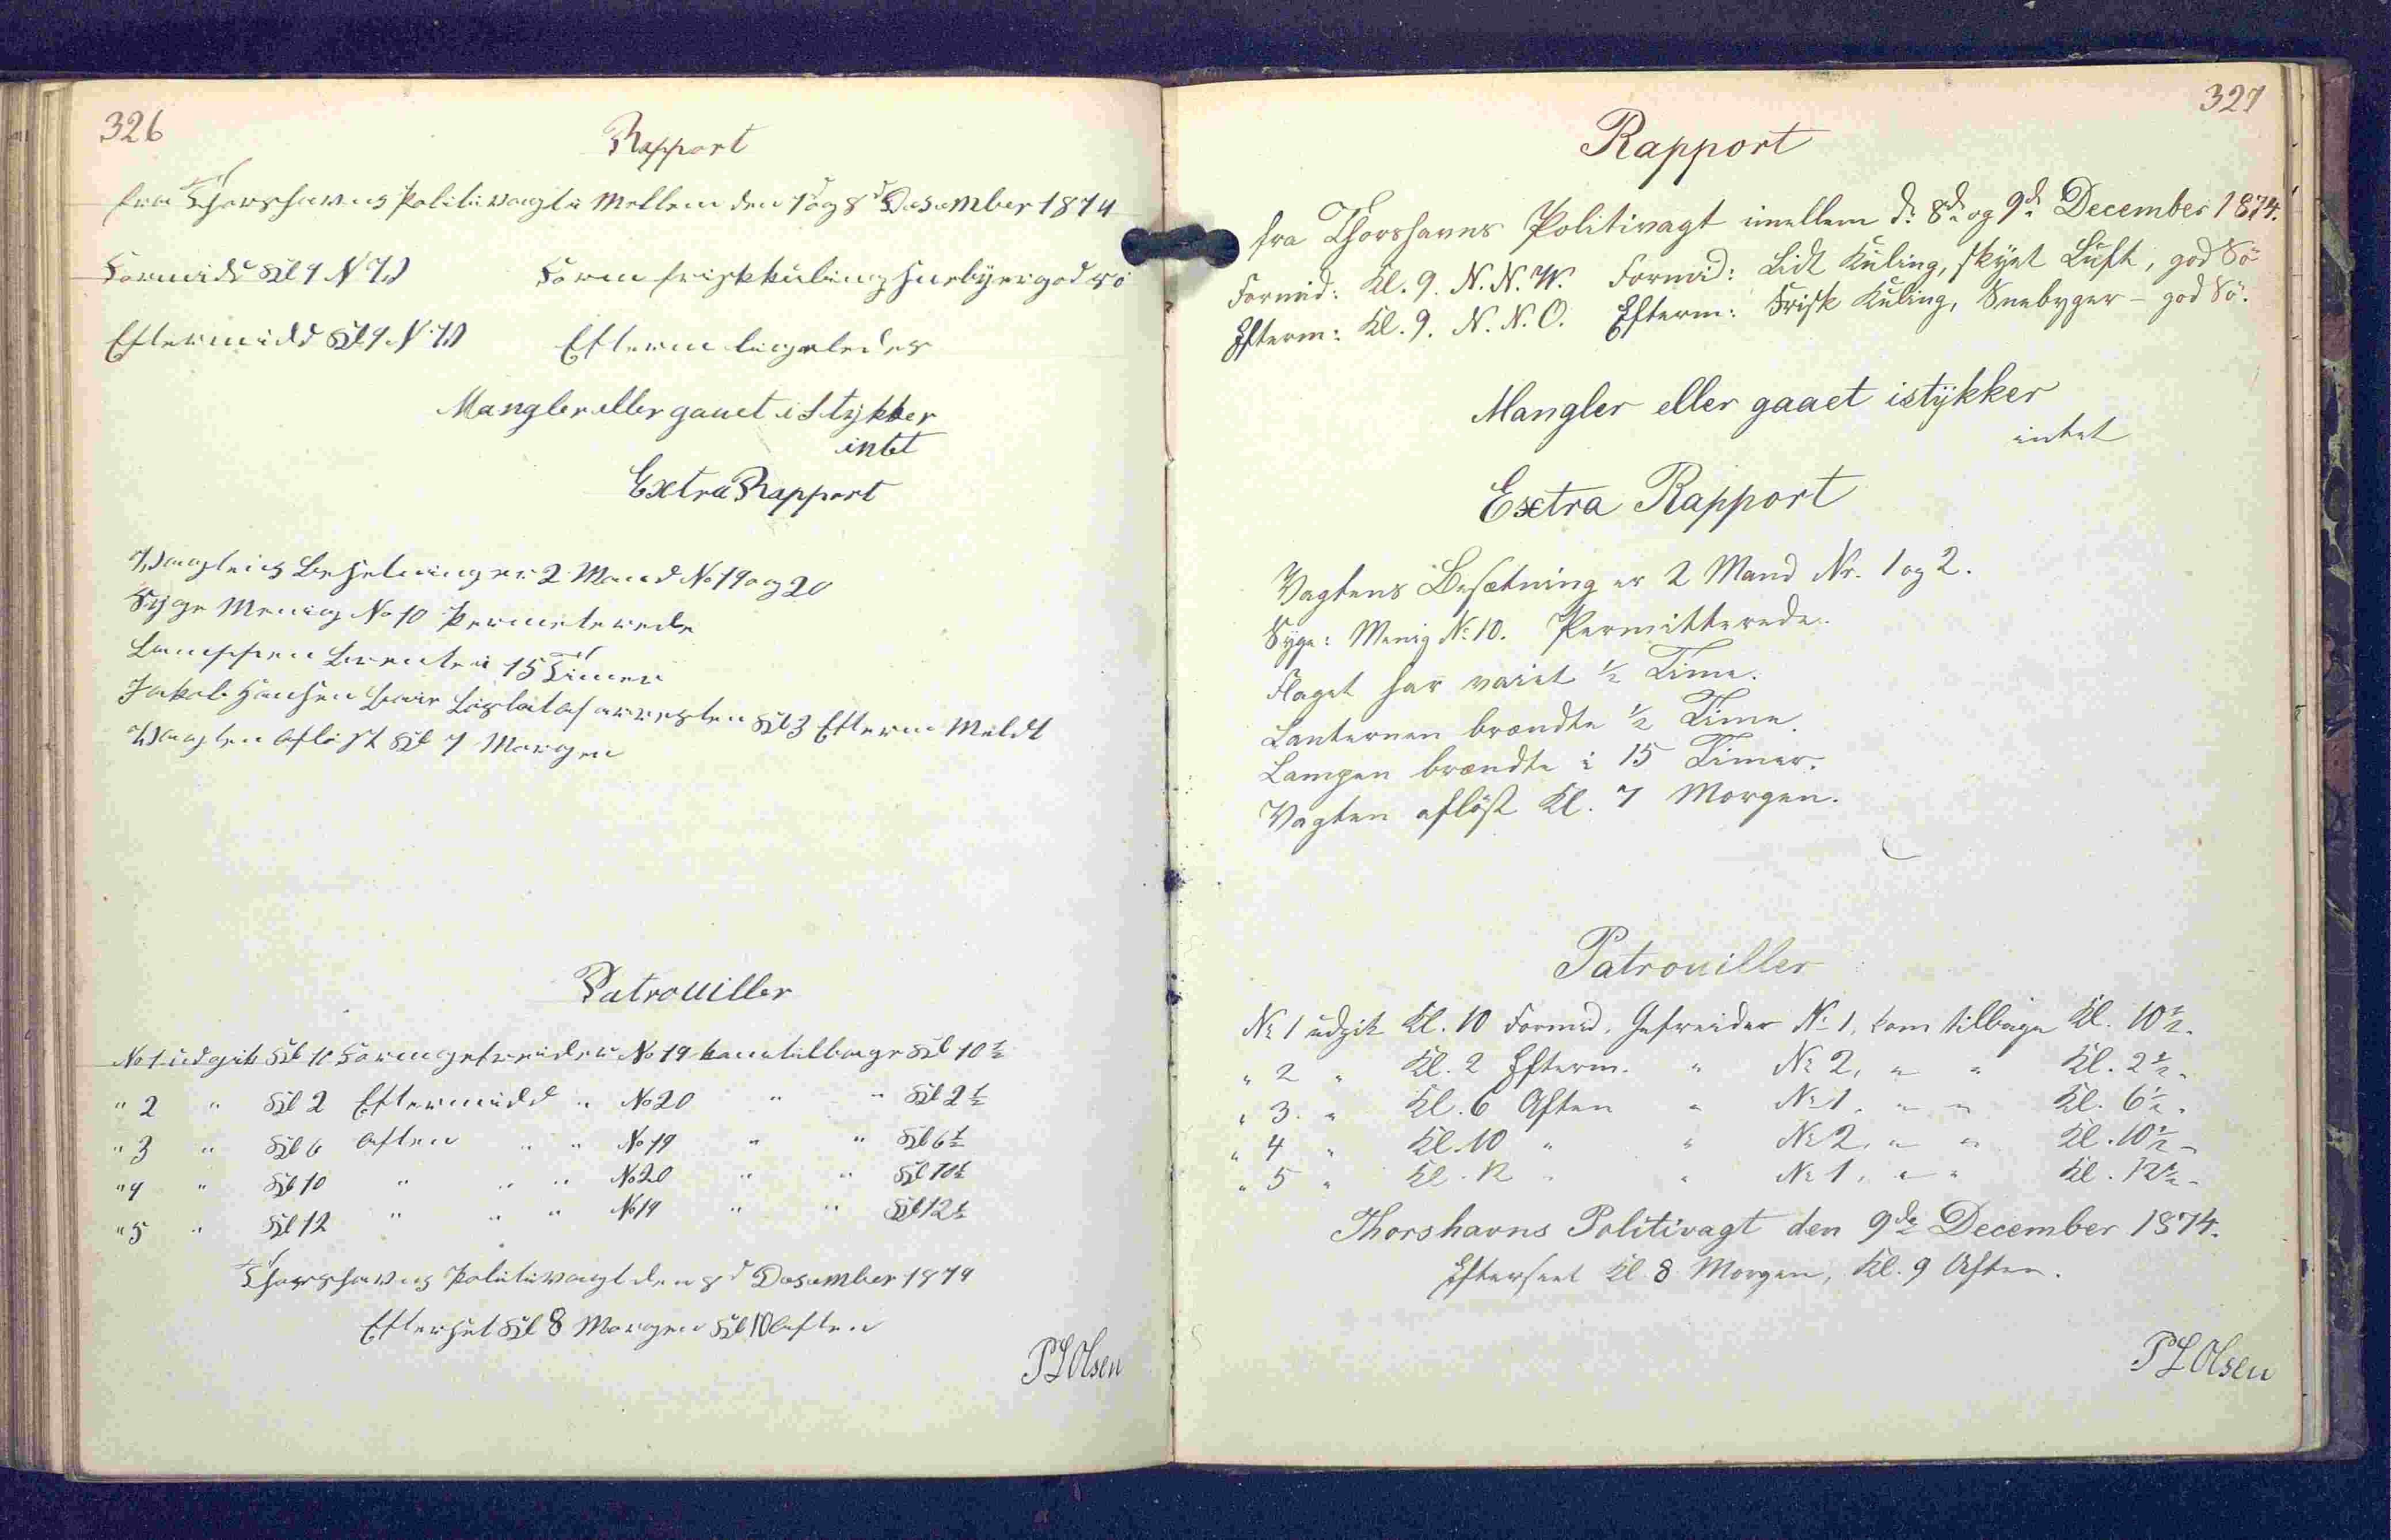 326
Rapport
fra Thorshavns Politivagt i Mellem den 7d og 8d Desember 1874
Formidd Kl 9 N W Form frisk kuling Snebyer god Sö
Eftermidd Kl 9 N W Efterm ligeledes
Mangler eller gauet i Stykker
intet
Extra Rapport
Wagtens Besetning er 2 Mand No 19 og 20
Syge Menig No 10 Permiterede
Lamppen brente i 15 Timer
Jakob Hansen blev löslat af arresten Kl 3 Efterm Meldt
Wagten Aflöst Kl 7 Morgen
Patrouiller
No 1 udgik Kl 10 Form gefreider No 19 kom tilbage Kl 10½
" 2 " Kl 2 Eftermidd " No 20 " " Kl 2½
" 3 " Kl 6 Aften " " No 19 " " Kl 6½
" 4 " Kl 10 " " " No 20 " " Kl 10½
" 5 " Kl 12 " " " No 19 " " Kl 12½
Thorshavns Politivagt den 8d Desember 1874
Efterset Kl 8 Morgen Kl 10 Aften
PLOlsen
327
Rapport
fra Thorshavns Politivagt imellem d. 8d og 9d December 1874.
Formid: Kl. 9. N.N.W. Formid: Lidt Kuling, skyet Luft, god Sö
Efterm: Kl. 9. N.N.O. Efterm: Frisk Kuling, Snebyger - god Sö.
Mangler eller gaaet istykker
intet
Extra Rapport
Vagtens Besætning er 2 Mand Nr. 1 og 2.
Syge: Menig No 10. Permitterede.
Flaget har vaiet ½ Time.
Lanternen brændte ½ Time.
Lampen brændte i 15 Timer.
Vagten aflöst Kl. 7 Morgen.
Patrouiller
No 1 udgik Kl. 10 Formid. Gefreider No 1, kom tilbage Kl. 10½.
" 2 " Kl. 2 Efterm. " No 2, " " Kl. 2½.
" 3. " Kl. 6 Aften " No 1. " " Kl. 6½.
" 4 " Kl. 10 " " No 2. " " Kl. 10½ -
" 5 " Kl. 12 " " No 1, " " Kl. 12½ -
Thorshavns Politivagt den 9de December 1874.
Efterseet Kl. 8 Morgen, Kl. 9 Aften.
PLOlsen